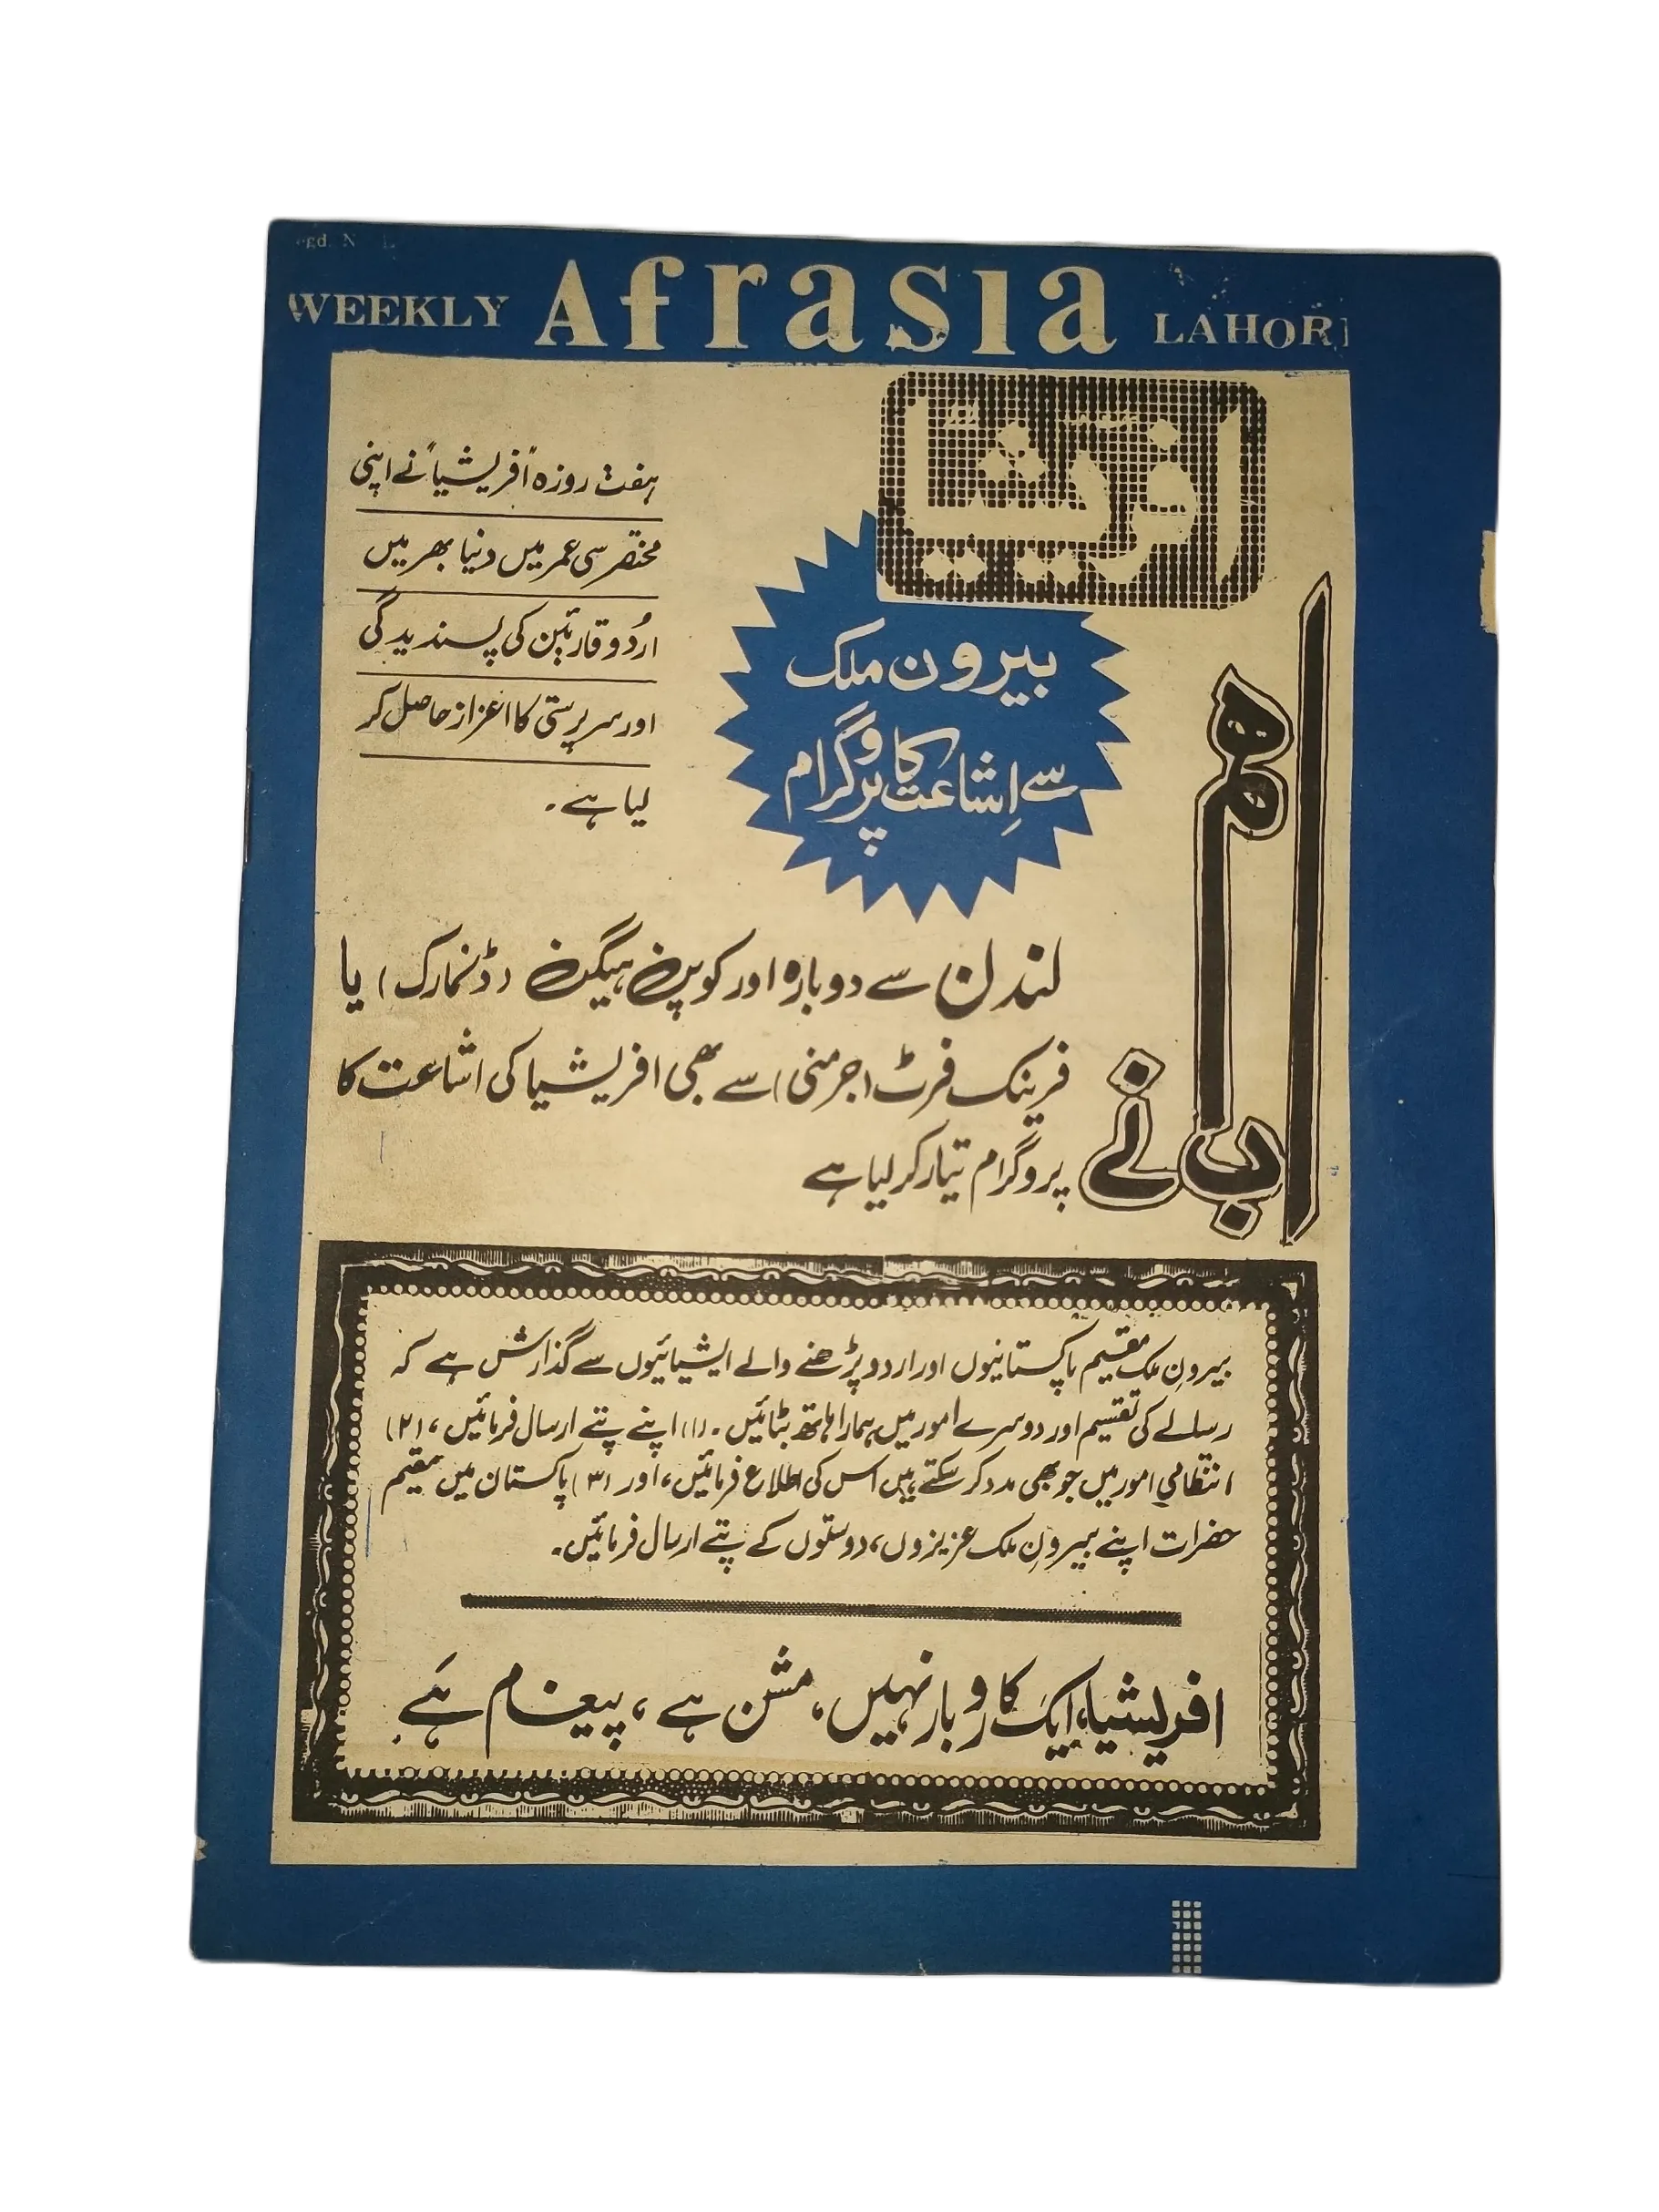 WEEKLY Afrasia LAHOR
افریشیا
ہفت روزہ "افریشیا" نے اپنی
مختصر سی عمر میں دنیا بھر میں
اردو قارئین کی پسندیدگی
اور سرپرستی کا اعزاز حاصل کر
لیا ہے۔
بیرون ملک
سے اِشاعت کا پروگرام
ہم
اب نے
لندن سے دوبارہ اور کوپن ہیگن (ڈنمارک) یا
فرینک فرٹ (جرمنی) سے بھی افریشیا کی اشاعت کا
پروگرام تیار کر لیا ہے
بیرونِ ملک مقیم پاکستانیوں اور اردو پڑھنے والے ایشیائیوں سے گذارش ہے کہ
رسالے کی تقسیم اور دوسرے امور میں ہمارا ہاتھ بٹائیں۔ (۱) اپنے پتے ارسال فرمائیں، (۲)
انتظامی امور میں جو بھی مدد کر سکتے ہیں اس کی اطلاع فرمائیں، اور (۳) پاکستان میں مقیم
حضرات اپنے بیرونِ ملک عزیزوں، دوستوں کے پتے ارسال فرمائیں۔
افریشیا، ایک کاروبار نہیں، مشن ہے، پیغام ہَے